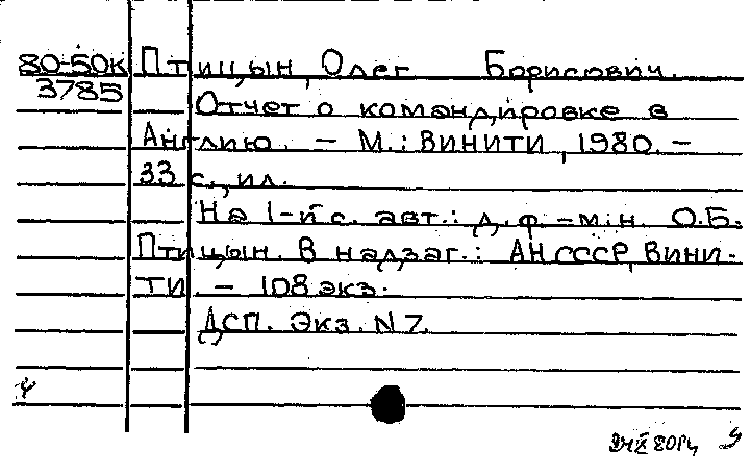 80-50К Птицын, Олег Борисович.
3785 Отчет о командировке в
Англию. – М.: ВИНИТИ, 1980. –
33 с., ил.
На 1-й с. авт.: д. ф.-м. н. О.Б.
Птицын. В надзаг.: АН СССР, ВИНИ-
ТИ. – 108 экз.
ДСП. Экз. N 7.